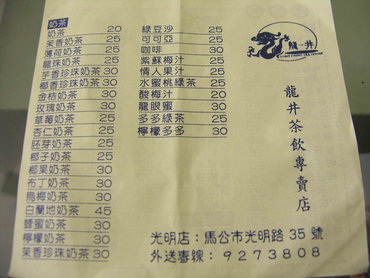 奶茶
奶茶 20
茉香奶茶 25
薄荷奶茶 25
龍珠奶茶 25
芋香珍珠奶茶 30
椰香珍珠奶茶 30
金桔奶茶 30
玫瑰奶茶 30
草莓奶茶 25
杏仁奶茶 25
胚芽奶茶 25
椰子奶茶 25
椰果奶茶 30
布丁奶茶 30
烏梅奶茶 30
白蘭地奶茶 45
蜂蜜奶茶 30
檸檬奶茶 30
茉香珍珠奶茶 30
綠豆沙 25
可可亞 25
咖啡 30
紫蘇梅汁 25
情人果汁 25
水蜜桃綠茶 25
酸梅汁 20
龍眼蜜 30
多多綠茶 25
檸檬多多 30
龍井
龍井茶飲專賣店
光明店：馬公市光明路35號
外送專線：9273808